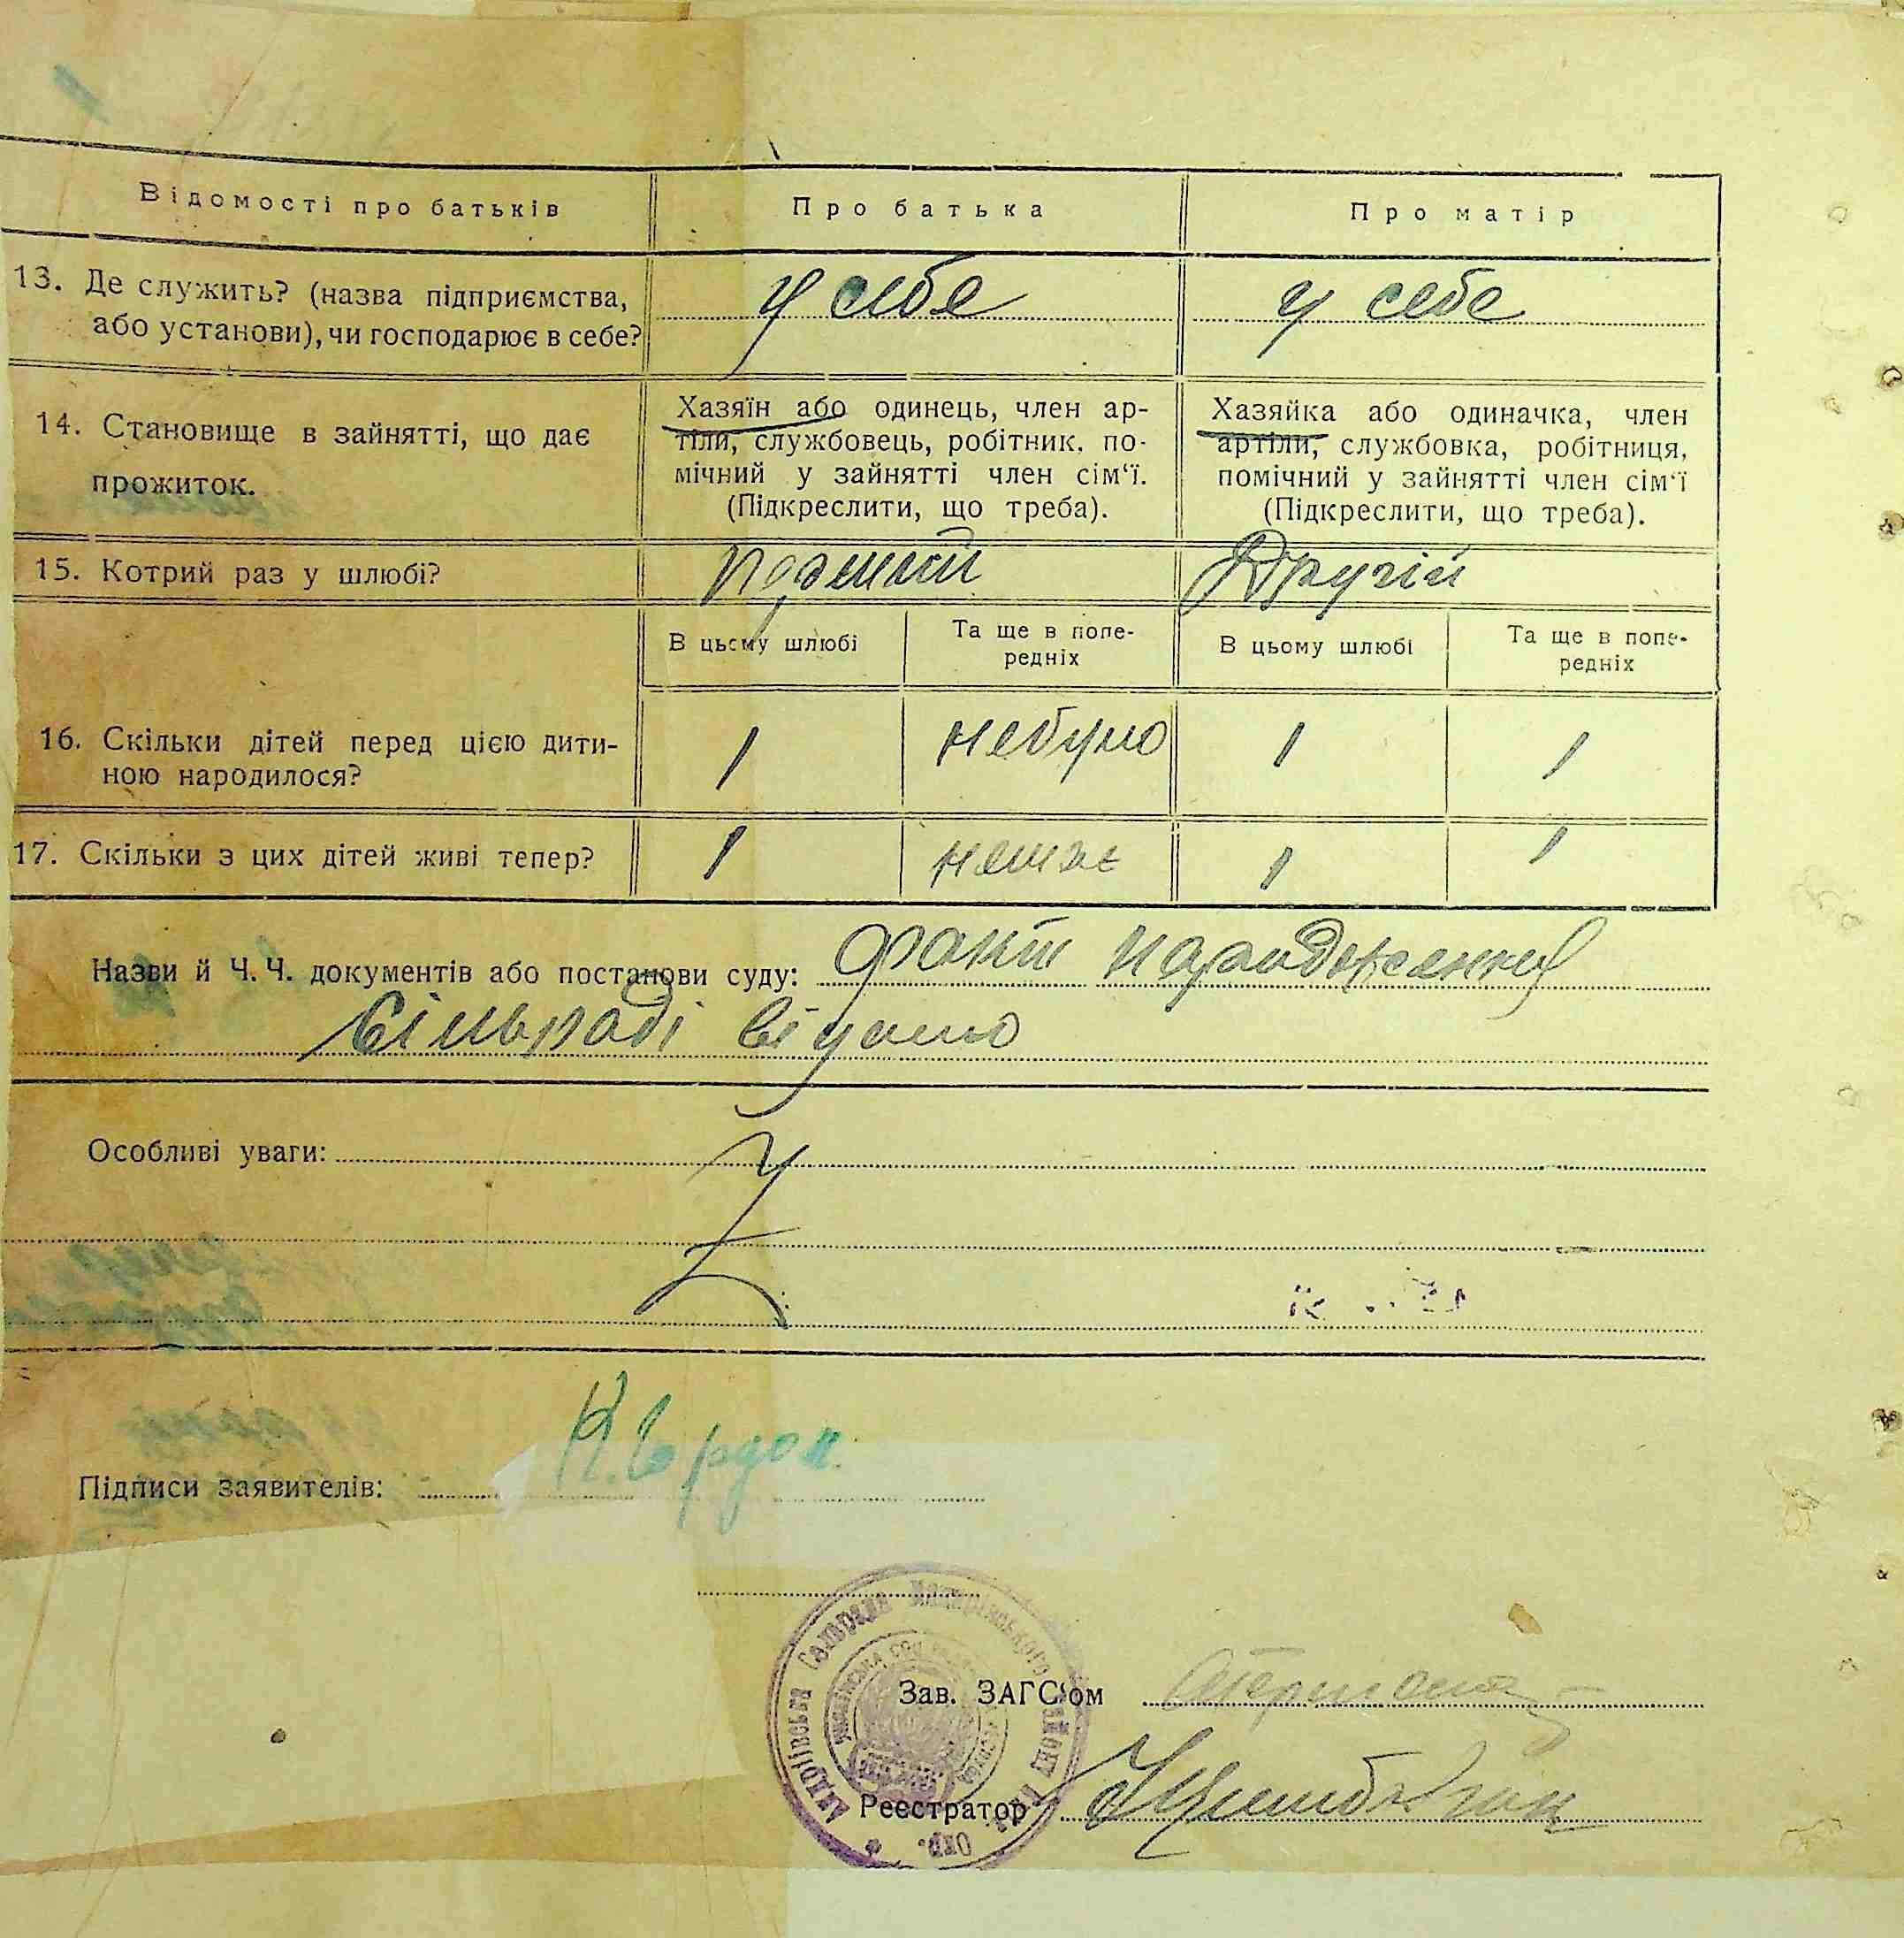 Відомості про батьків
Про батька
Про матір
13. Де служить? (назва підприємства,
або установи), чи господарює в себе?
у себе
у себе
14. Становище в зайнятті, що дає
прожиток.
Хазяїн або одинець, член ар-
тіли, службовець, робітник, по-
мічний у зайнятті член сім'ї.
(Підкреслити, що треба).
Хазяйка або одиначка, член
артіли, службовка, робітниця,
помічний у зайнятті член сім'ї
(Підкреслити, що треба).
15. Котрий раз у шлюбі?
Другій
В цьому шлюбі
Та ще в попе-
редніх
В цьому шлюбі
Та ще в попе-
редніх
16. Скільки дітей перед цією дити-
ною народилося?
1
небуло
1
1
17. Скільки з цих дітей живі тепер?
1
немає
1
1
Назви й Ч. Ч. документів або постанови суду: факт
Сільраді
Особливі уваги:
Підписи заявителів:
Зав. ЗАГС'ом
Реєстратор